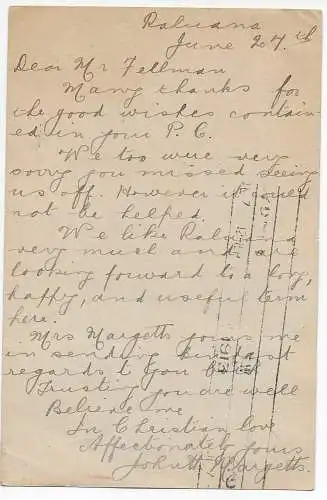 Raluana
June 24th
Dear Mr Fellman
Many thanks for
the good wishes contain-
ed in your P. C.
We too were very
sorry you missed seeing
us off. However it could
not be helped.
We like Raluana
very much and are
looking forward to a long,
happy, and useful term
here.
Mrs Margetts joins me
in sending kindest
regards to you both
Trusting you are well
Believe me
In Christian love
Affectionately yours
John H. Margetts.